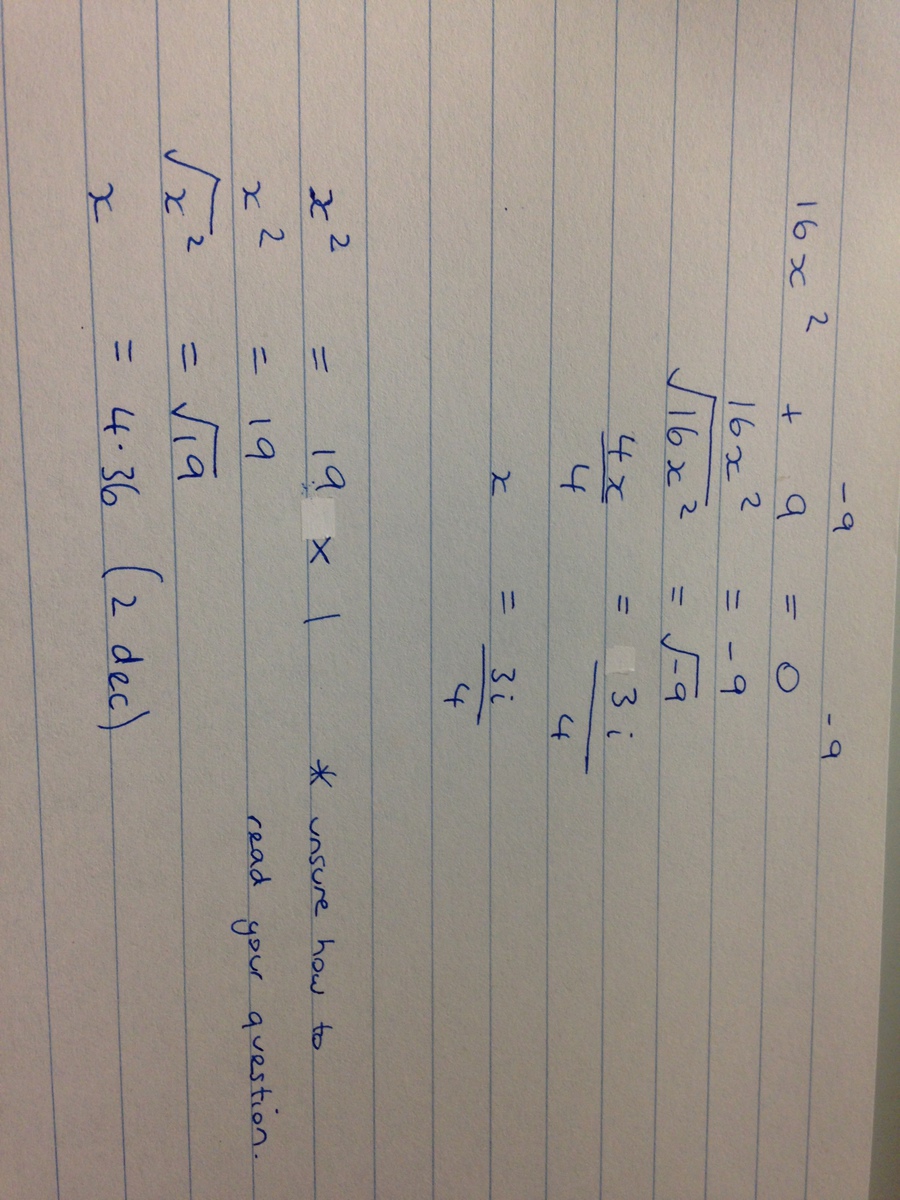 -9 -9
16x² + 9 = 0
16x² = -9
√16x² = √-9
4x/4 = 3i/4
x = 3i/4
x² = 19 x 1 * unsure how to
x² = 19 read your question.
√x² = √19
x = 4.36 (2 dec)